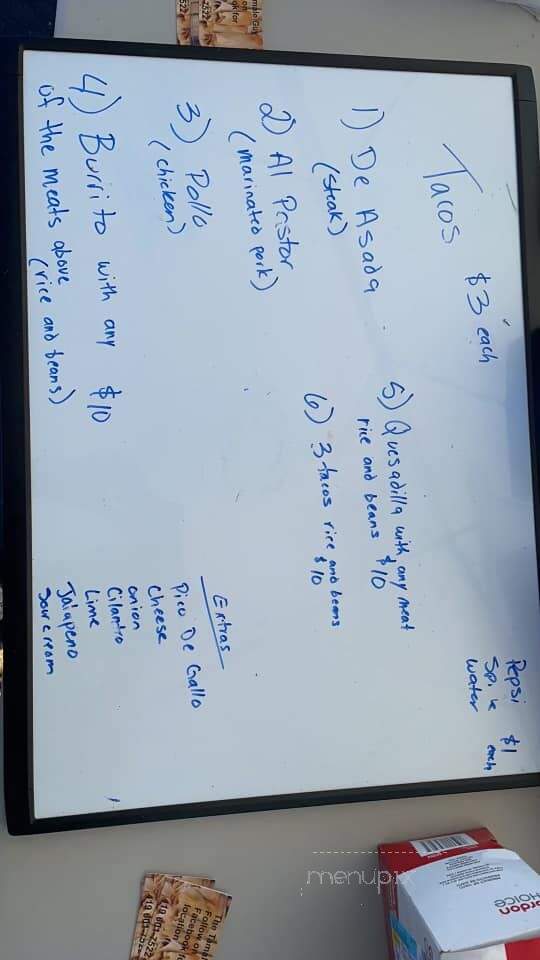 Tacos $3 each
1) De Asada
(steak)
2) Al Pastor
(marinated pork)
3) Pollo
(chicken)
4) Burrito with any $10
of the meats above
(rice and beans)
5) Quesadilla with any meat
rice and beans $10
6) 3 tacos rice and beans
$10
Pepsi $1
each
Water
Extras
Pico De Gallo
Cheese
onion
Cilantro
Lime
Jalapeno
sour cream
menupix
ordon
HOICE
Follow
Facebook
location